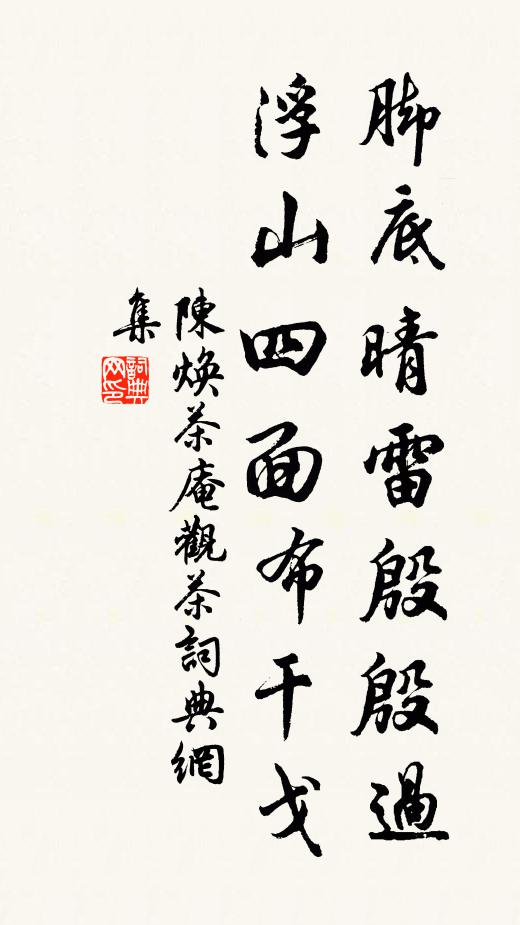 脚底晴雷殷殷過
浮山四面布干戈
陳煥茶庵觀茶詞典網
集
詞典
网印